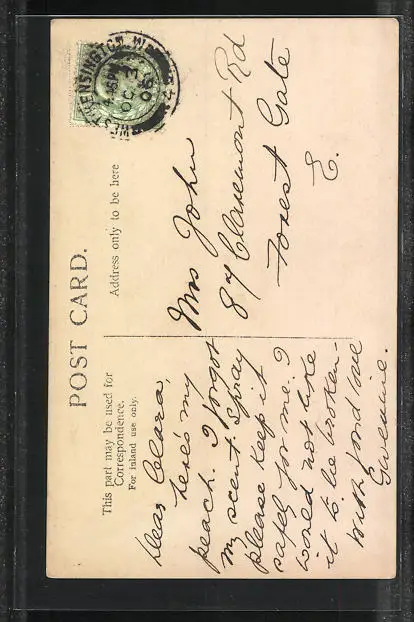 POST CARD.
This part may be used for
Correspondence.
For inland use only.
Address only to be here
WEST KENSINGTON. W.
OC 3
06
Dear Clara,
here's my
peach. I forgot
my scent spray
please keep it
safely for me. I
would not like
it to be broken
With fond love
Mrs John
87 Claremont Rd
Forest Gate
E.